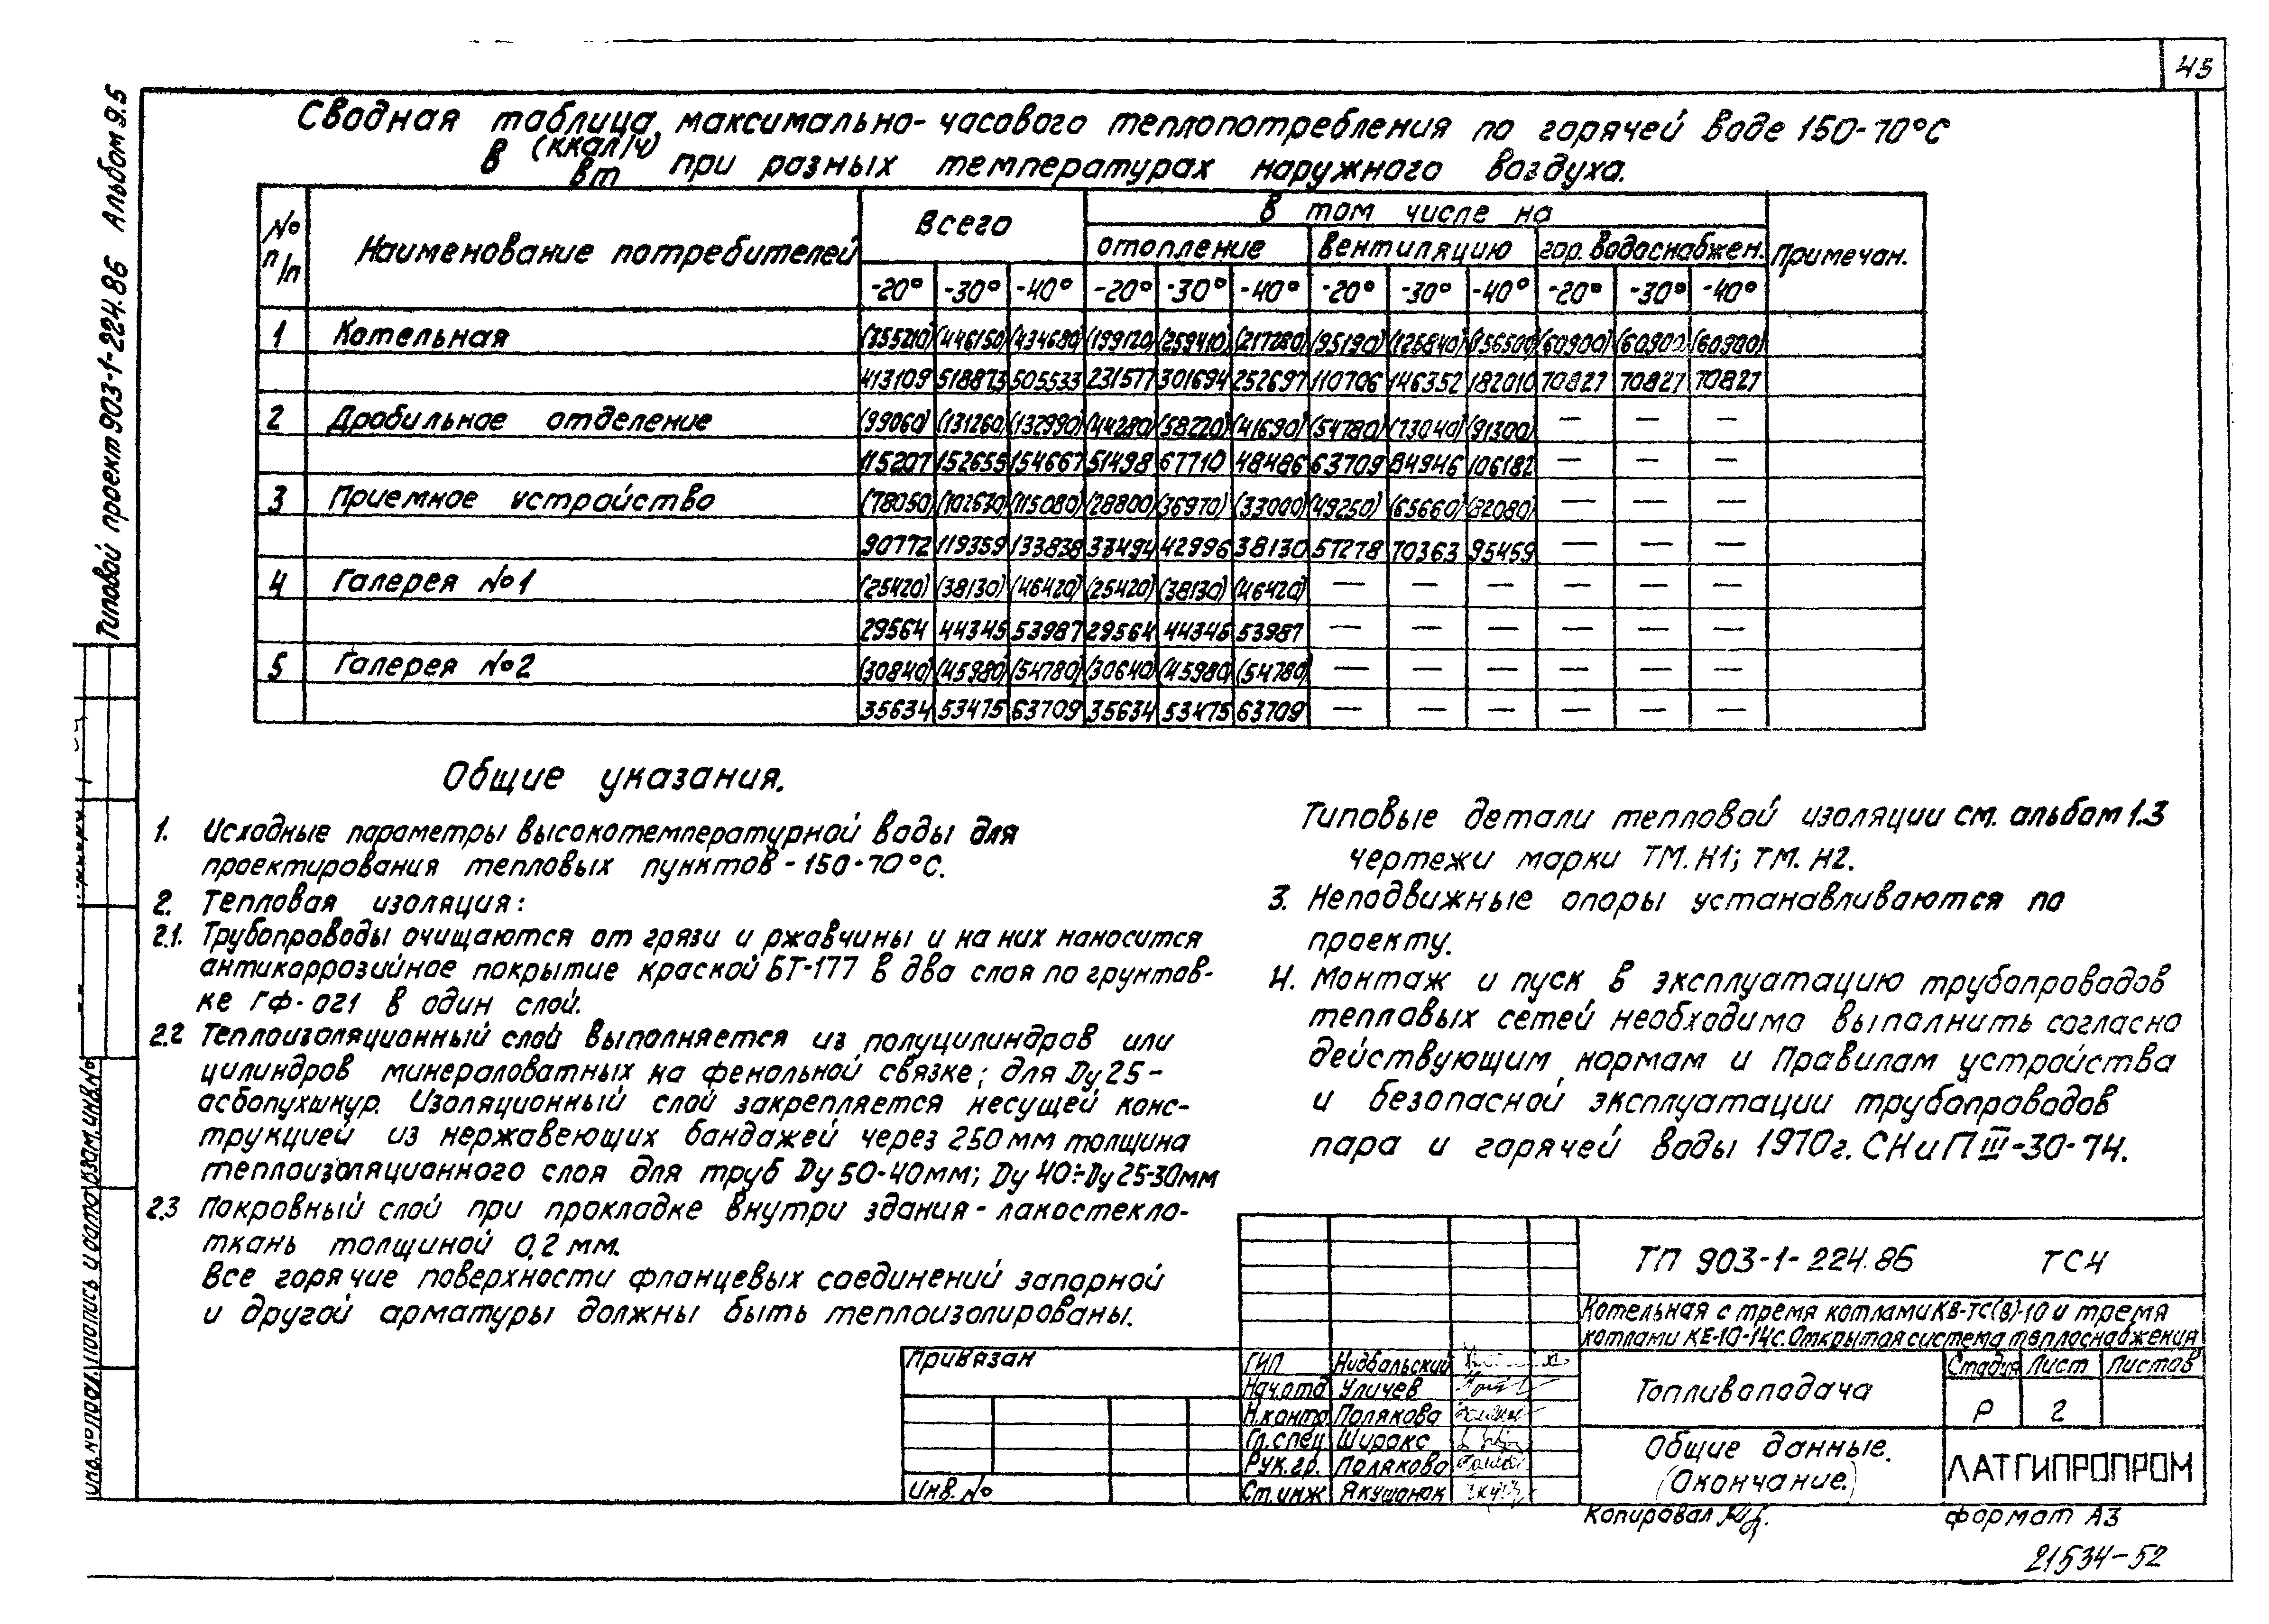 45
Типовой проект 903-1-224.86 Альбом 9.5
Сводная таблица максимально-часового теплопотребления по горячей воде 150-70°С
в (ккал/ч) вт при разных температурах наружного воздуха.
№ п/п | Наименование потребителей | Всего | В том числе на | Примечан.
отопление | вентиляцию | гор. водоснабжен.
-20° | -30° | -40° | -20° | -30° | -40° | -20° | -30° | -40° | -20° | -30° | -40°
1 | Котельная | (355210) | (446150) | (434680) | (199120) | (259410) | (217280) | (95190) | (125840) | (156500) | (60900) | (60900) | (60900)
413109 | 518873 | 505533 | 231577 | 301694 | 252697 | 110706 | 146352 | 182010 | 70827 | 70827 | 70827
2 | Дробильное отделение | (99060) | (131260) | (132990) | (44280) | (58220) | (41690) | (54780) | (73040) | (91300) | — | — | —
115207 | 152655 | 154667 | 51498 | 67710 | 48486 | 63709 | 84946 | 106182 | — | — | —
3 | Приемное устройство | (78050) | (102630) | (115080) | (28800) | (36970) | (33000) | (49250) | (65660) | (82080) | — | — | —
90772 | 119359 | 133838 | 33494 | 42996 | 38130 | 57278 | 70363 | 95459 | — | — | —
4 | Галерея №1 | (25420) | (38130) | (46420) | (25420) | (38130) | (46420) | — | — | — | — | — | —
29564 | 44345 | 53987 | 29564 | 44346 | 53987 | — | — | — | — | — | —
5 | Галерея №2 | (30840) | (45980) | (54780) | (30640) | (45980) | (54780) | — | — | — | — | — | —
35634 | 53475 | 63709 | 35634 | 53475 | 63709 | — | — | — | — | — | —
Общие указания.
1. Исходные параметры высокотемпературной воды для
проектирования тепловых пунктов - 150-70°С.
2. Тепловая изоляция:
2.1. Трубопроводы очищаются от грязи и ржавчины и на них наносится
антикоррозийное покрытие краской БТ-177 в два слоя по грунтов-
ке ГФ-021 в один слой.
2.2 Теплоизоляционный слой выполняется из полуцилиндров или
цилиндров минераловатных на фенольной связке; для Ду 25-
асбопухшнур. Изоляционный слой закрепляется несущей конс-
трукцией из нержавеющих бандажей через 250 мм толщина
теплоизоляционного слоя для труб Ду 50-40мм; Ду 40÷Ду 25-30мм
2.3 Покровный слой при прокладке внутри здания - лакостекло-
ткань толщиной 0,2 мм.
Все горячие поверхности фланцевых соединений запорной
и другой арматуры должны быть теплоизолированы.
Типовые детали тепловой изоляции см. альбом 1.3
чертежи марки ТМ.Н1; ТМ.Н2.
3. Неподвижные опоры устанавливаются по
проекту.
4. Монтаж и пуск в эксплуатацию трубопроводов
тепловых сетей необходимо выполнить согласно
действующим нормам и Правилам устройства
и безопасной эксплуатации трубопроводов
пара и горячей воды 1970г. СНиП III-30-74.
ТП 903-1-224.86 ТС4
Котельная с тремя котлами КВ-ТС(В)-10 и тремя
котлами КЕ-10-14с. Открытая система теплоснабжения
Привязан
Инв. №
ГИП Нидбальский
Нач.отд Уличев
Н.контр Полякова
Гл.спец Широкс
Рук.гр. Полякова
Ст.инж Якушанок
Топливоподача
Стадия Лист Листов
Р 2
Общие данные.
(Окончание.)
ЛАТГИПРОПРОМ
Копировал
формат А3
21534-52
Инв.№ подл. Подпись и дата Взам.инв.№